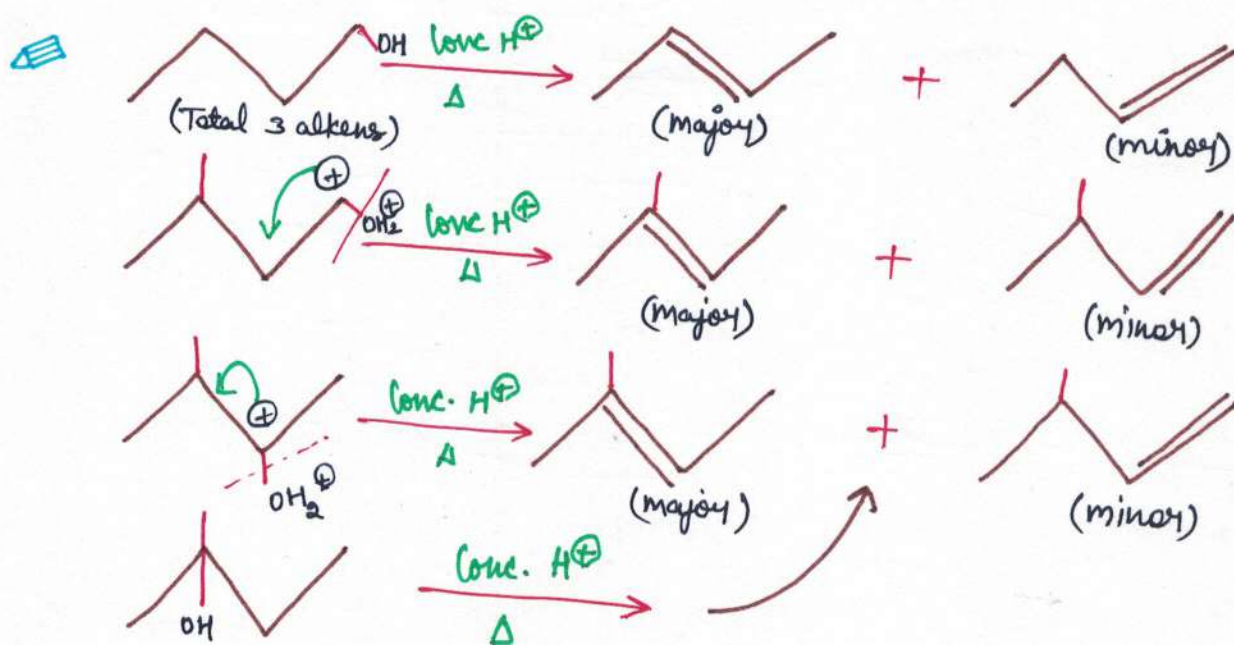 OH Conc H⊕
Δ
+
(Total 3 alkens)
(major)
(minor)
⊕
OH₂⊕ Conc H⊕
Δ
+
(major)
(minor)
⊕
Conc. H⊕
Δ
+
OH₂⊕
(major)
(minor)
Conc. H⊕
Δ
OH